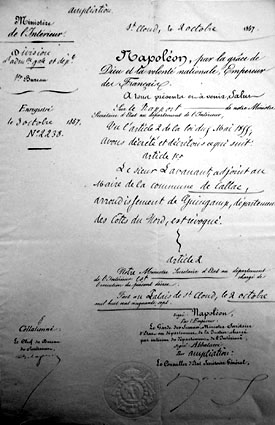 ampliation.
Ministère
de l'Intérieur
St Cloud, le 2 octobre 1857.
Division
d'admon gle et deple
1er Bureau
Enregistré
le 3 octobre 1857.
No 4238.
Napoléon, par la grâce de
Dieu et la volonté nationale, Empereur
des Français,
A tous présents et à venir, Salut
Sur le Rapport de notre Ministre
Secrétaire d'Etat au département de l'Intérieur,
Vu l'article 2 de la loi du 5 Mai 1855,
Avons décrété et décrétons ce qui suit
article 1er
Le sieur Lavanant, adjoint au
Maire de la commune de Callac,
arrondissement de Guingamp, département
des Côtes du Nord, est révoqué.
article 2
Notre Ministre Secrétaire d'Etat au département
de l'Intérieur est chargé de
l'exécution du présent décret.
Fait au Palais de St Cloud, le 2 octobre
mil huit cent cinquante sept.
signé: Napoléon,
Par l'Empereur
Le Garde des Sceaux Ministre Secrétaire
d'Etat au département de la Justice chargé
par intérim du département de l'Intérieur,
signé: Abbatucci
Pour ampliation:
Le Conseiller d'Etat Secrétaire Général,
Collationné
Le Chef du Bureau